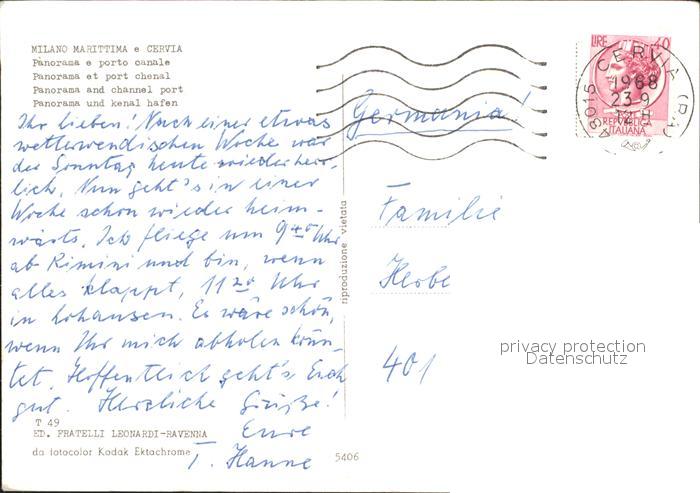 MILANO MARITTIMA e CERVIA
Panorama e porto canale
Panorama et port chenal
Panorama and channel port
Panorama und kenal hafen
Ihr lieben! Nach einer etwas
wetterwendischen Woche war
der Sonntag heute wieder herr-
lich. Nun geht's in einer
Woche schon wieder heim-
wärts. Ich fliege um 9 40 Uhr
ab Rimini und bin, wenn
alles klappt, 11 20 Uhr
in Lohausen. Es wäre schön,
wenn Ihr mich abholen könn-
tet. Hoffentlich geht's Euch
gut. Herzliche Grüße!
Eure
T. Hanne
T 49
ED. FRATELLI LEONARDI-RAVENNA
da fotocolor Kodak Ektachrome
5406
riproduzione vietata
Germania!
Familie
Herbe
401
LIRE 40
REPUBBLICA
ITALIANA
48015 CERVIA (RA)
1968
23 9
privacy protection
Datenschutz